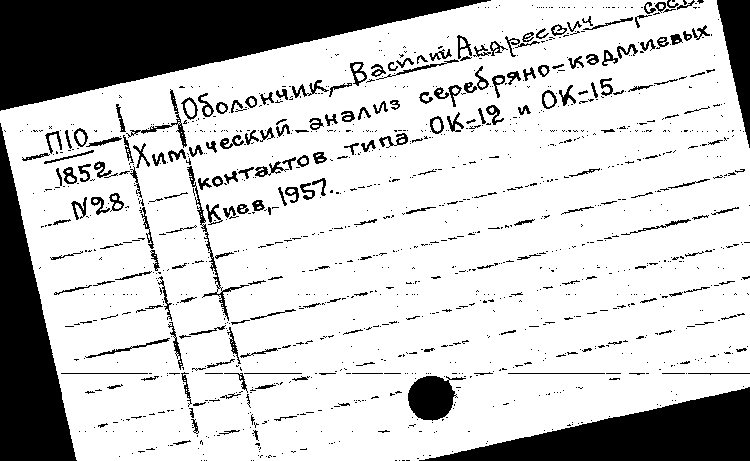 Оболончик, Василий Андреевич, сост.
Химический анализ серебряно-кадмиевых
контактов типа ОК-12 и ОК-15
Киев, 1957.
П10
1852
N28